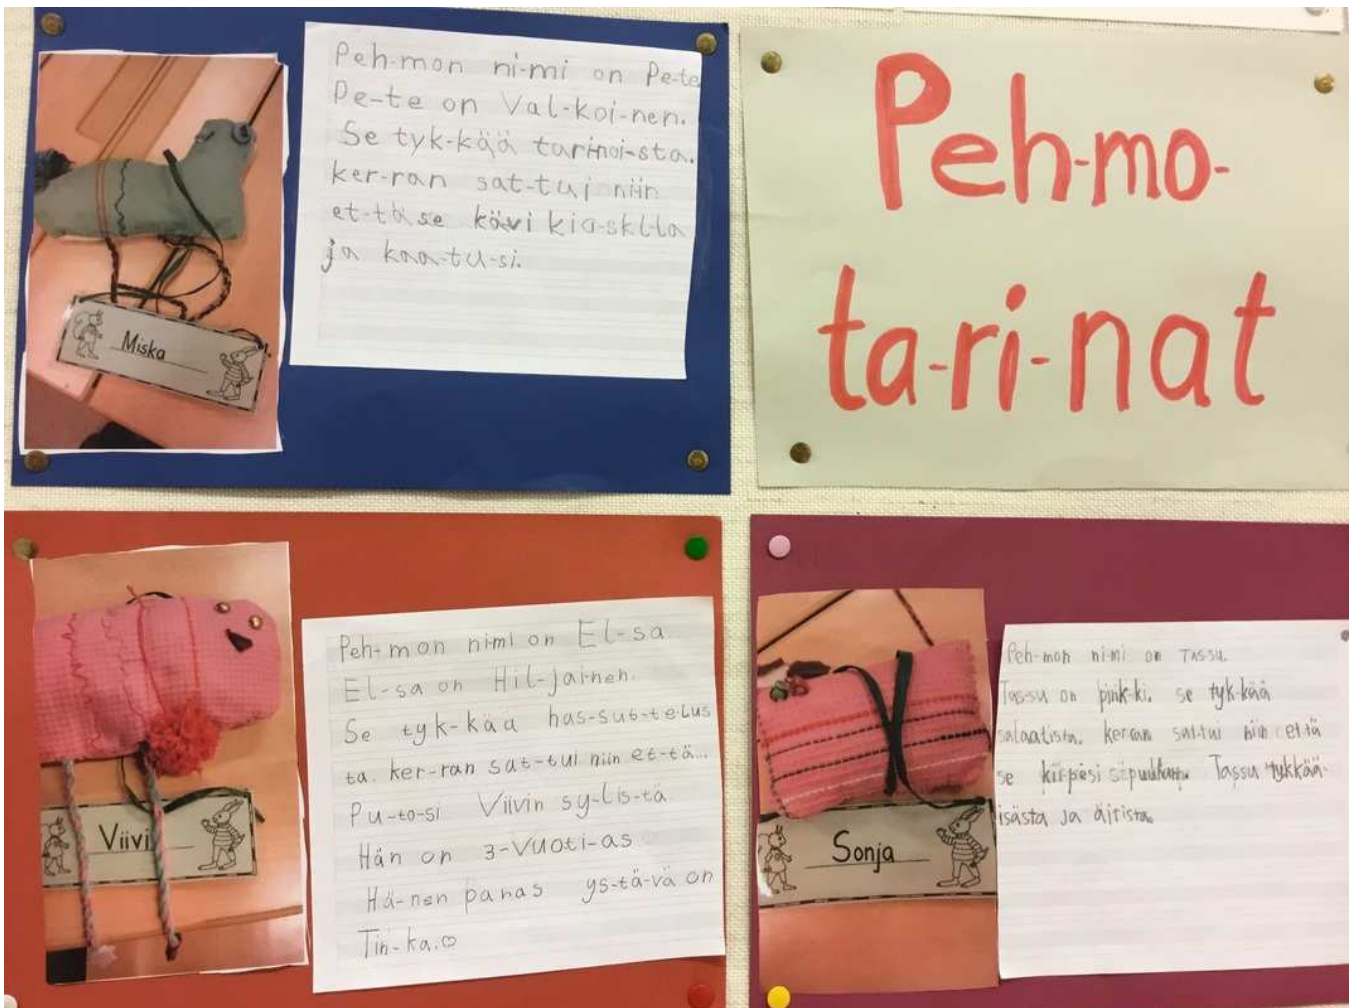 Peh-mon ni-mi on Pe-te
Pe-te on Val-koi-nen.
Se tyk-kää tarinoi-sta.
ker-ran sat-tui niin
et-tä se kävi
ja kaa-tu-si.
Miska
Peh-mo-
ta-ri-nat
Peh-mon nimi on El-sa
El-sa on Hil-jai-nen.
Se tyk-kää has-sut-telus
ta. ker-ran sat-tui niin et-tä...
Pu-to-si Viivin sy-lis-tä
Hän on 3-vuoti-as
Hä-nen paras ys-tä-vä on
Tin-ka.♡
Viivi
Peh-mon ni-mi on Tas-su.
Tassu on pink-ki. se tyk-kää
salaatista. kerran sat-tui niin et-tä
se Tassu tykkää
isästa ja äitista.
Sonja